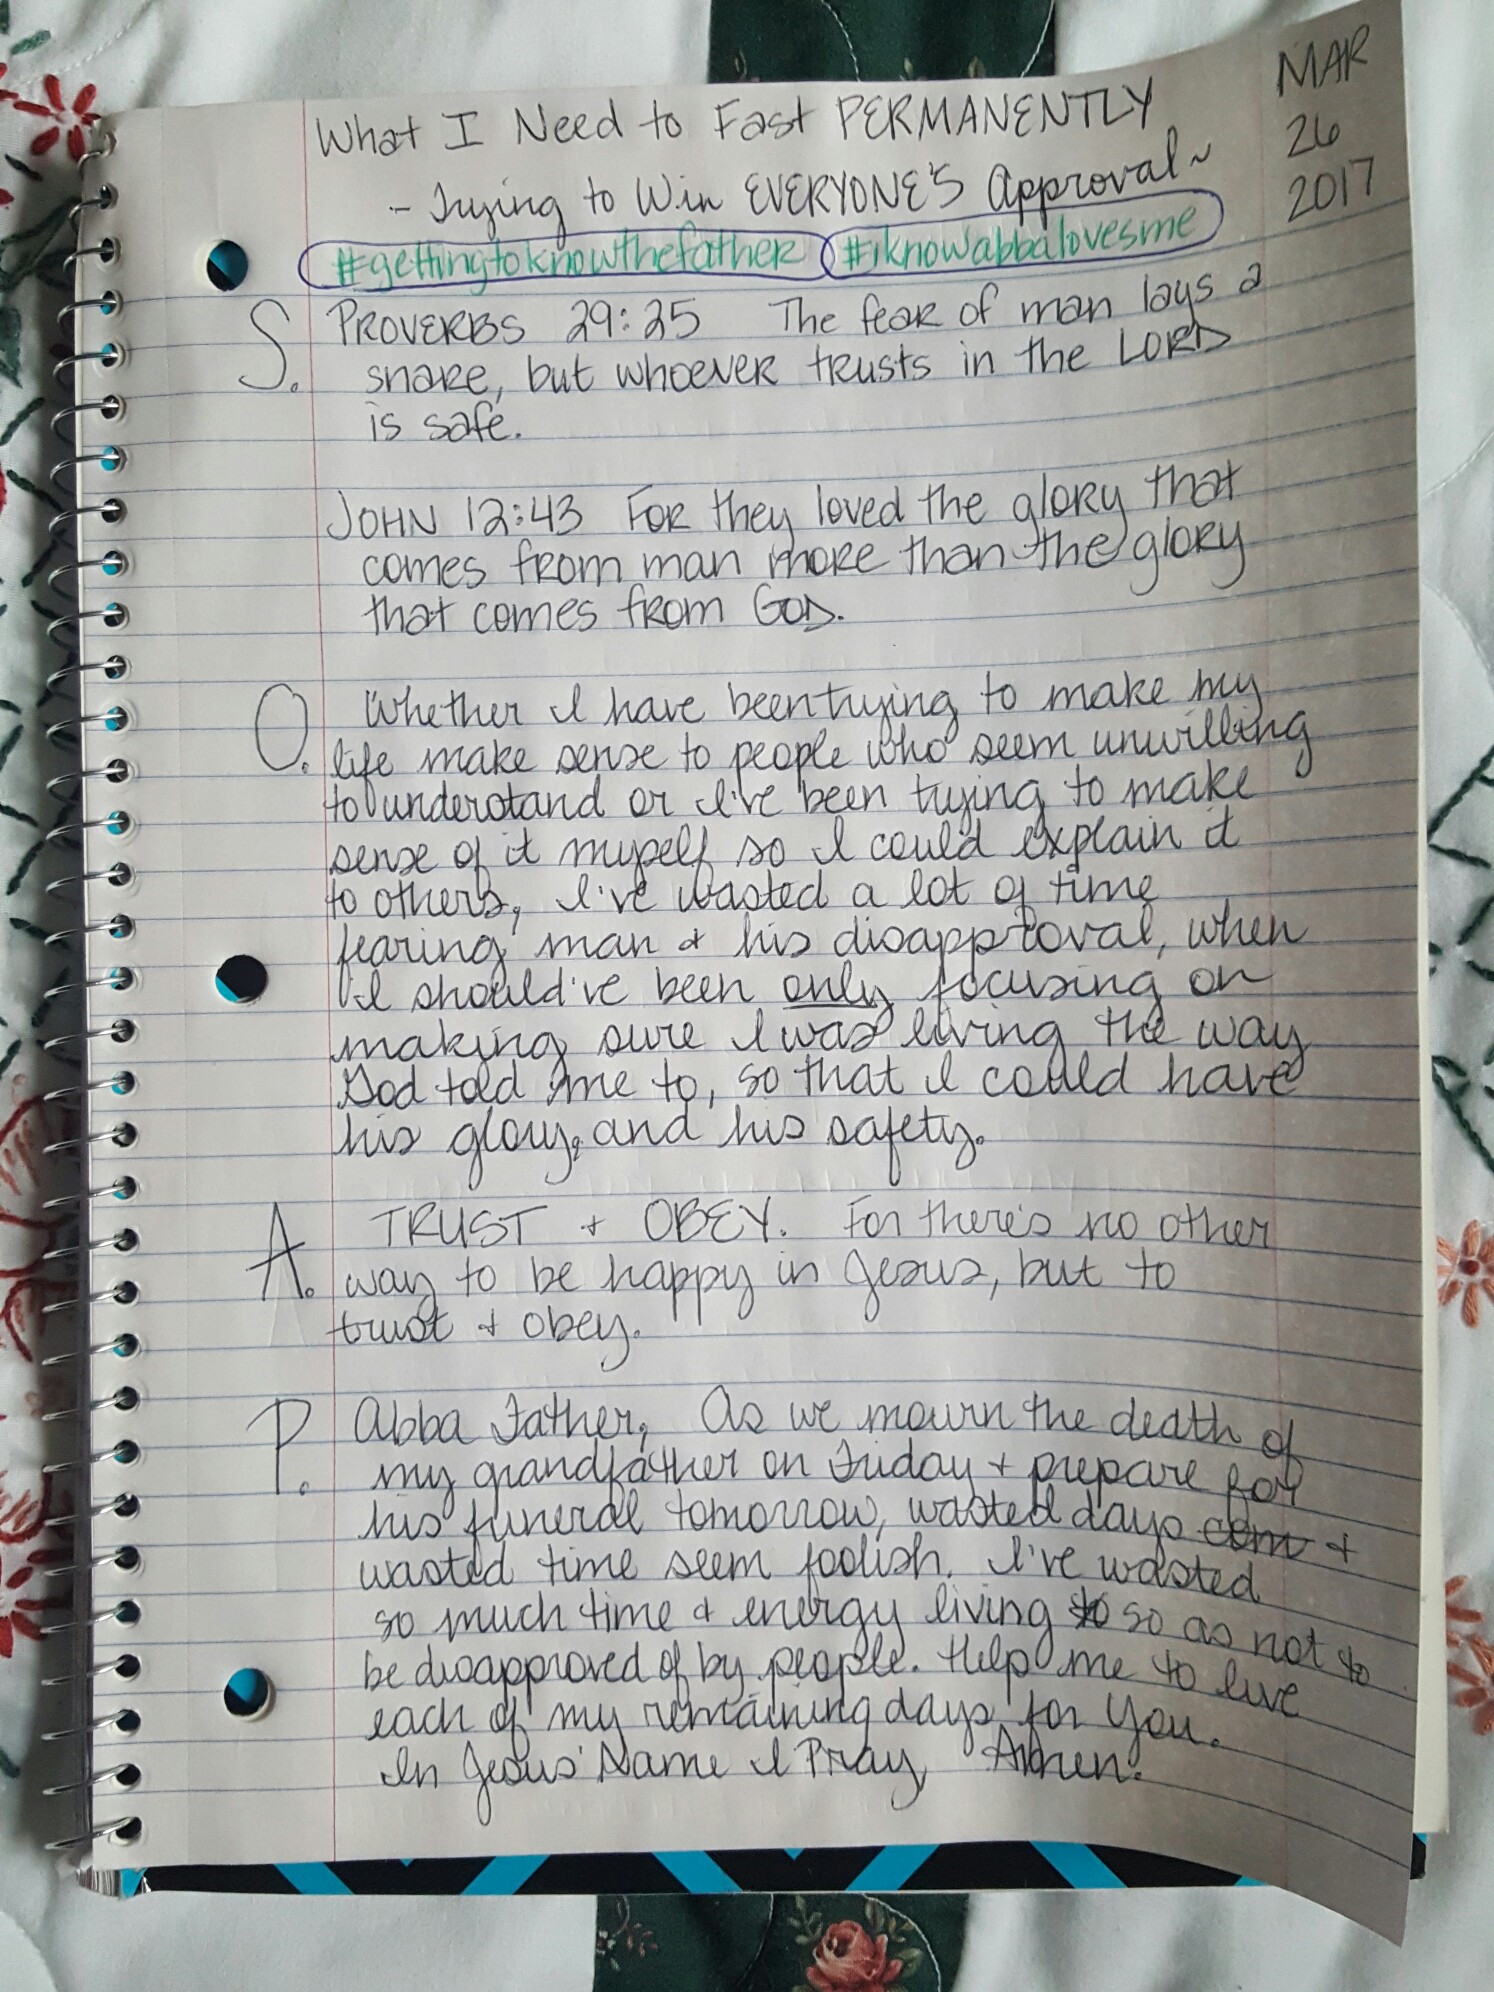 What I Need to Fast PERMANENTLY
- Trying to Win EVERYONE'S Approval ~
MAR
26
2017
#gettingtoknowthefather #iknowabbalovesme
S. PROVERBS 29:25 The fear of man lays a
snare, but whoever trusts in the LORD
is safe.
JOHN 12:43 For they loved the glory that
comes from man more than the glory
that comes from God.
O. Whether I have been trying to make my
life make sense to people who seem unwilling
to understand or I've been trying to make
sense of it myself so I could explain it
to others, I've wasted a lot of time
fearing man & his disapproval, when
I should've been only focusing on
making sure I was living the way
God told me to, so that I could have
his glory, and his safety.
A. TRUST & OBEY. For there's no other
way to be happy in Jesus, but to
trust & obey.
P. Abba Father, As we mourn the death of
my grandfather on Friday & prepare for
his funeral tomorrow, wasted days com &
wasted time seem foolish. I've wasted
so much time & energy living to so as not to
be disapproved of by people. Help me to live
each of my remaining days for You.
In Jesus' Name I Pray, Amen.